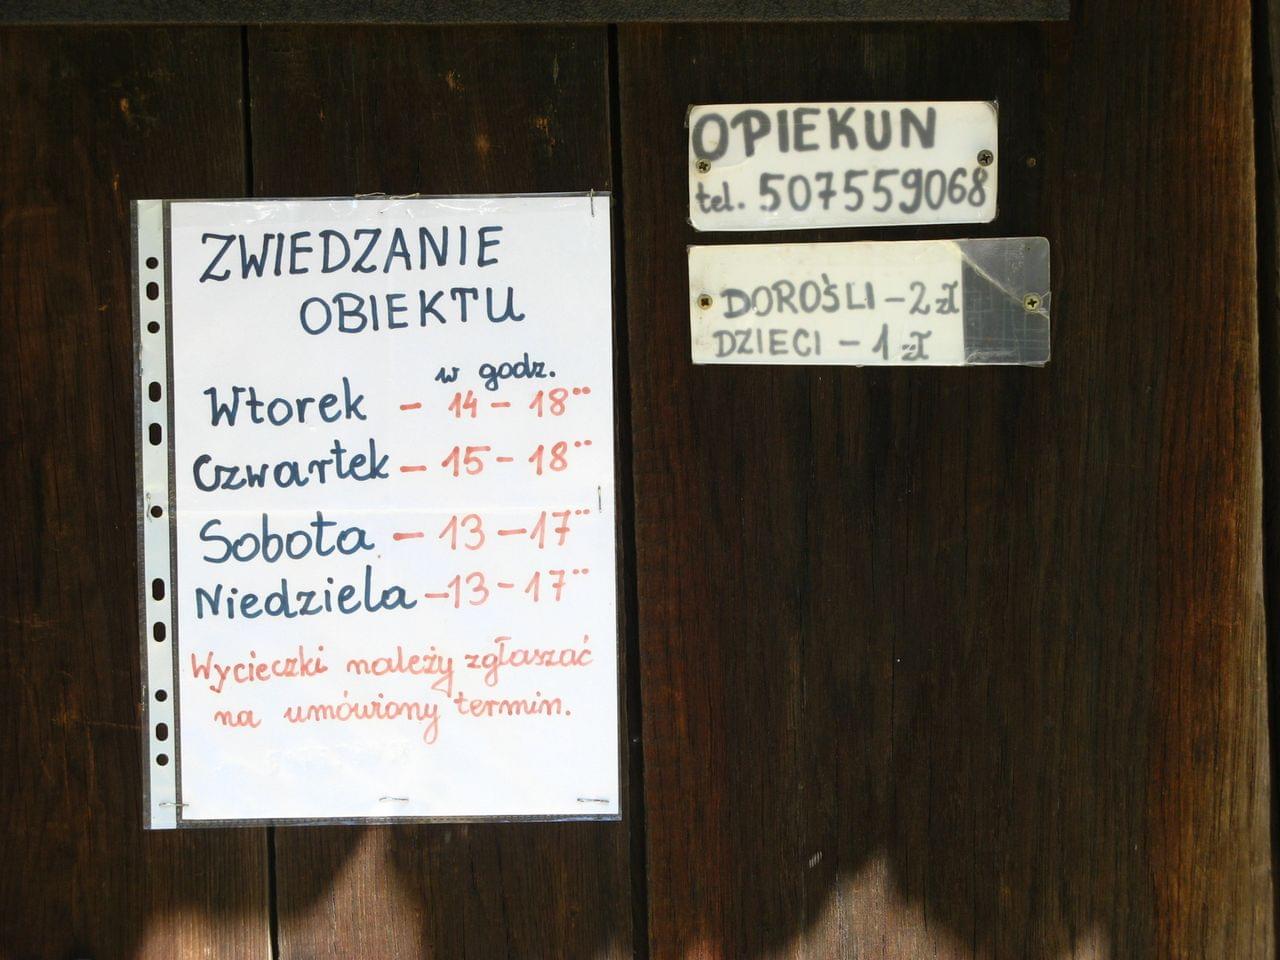 ZWIEDZANIE
OBIEKTU
w godz.
Wtorek - 14 - 18°°
Czwartek - 15 - 18°°
Sobota - 13 - 17°°
Niedziela - 13 - 17°°
Wycieczki należy zgłaszać
na umówiony termin.
OPIEKUN
tel. 507559068
DOROŚLI - 2 zł
DZIECI - 1 zł